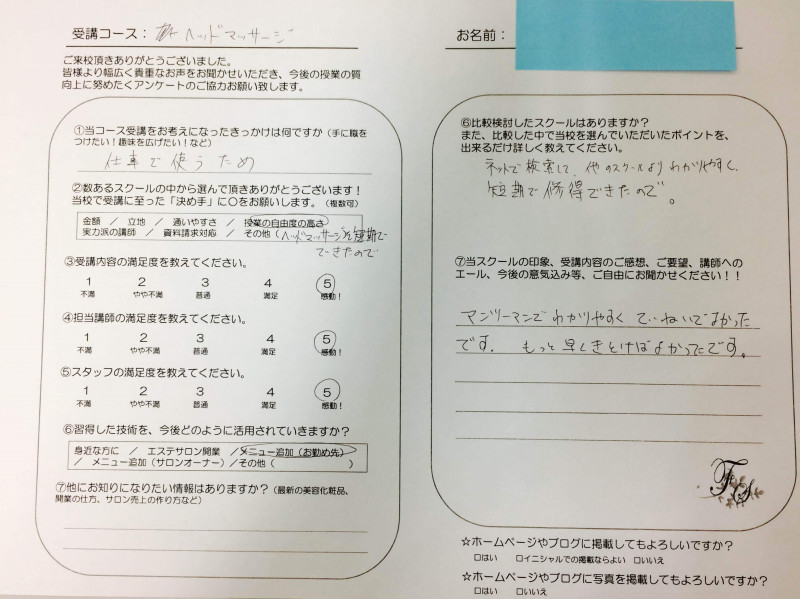 受講コース： ヘッドマッサージ
ご来校頂きありがとうございました。
皆様より幅広く貴重なお声をお聞かせいただき、今後の授業の質
向上に努めたくアンケートのご協力お願い致します。
①当コース受講をお考えになったきっかけは何ですか（手に職を
つけたい！趣味を広げたい！など）
仕事で使うため
②数あるスクールの中から選んで頂きありがとうございます！
当校で受講に至った「決め手」に○をお願いします。（複数可）
金額 ／ 立地 ／ 通いやすさ ／ 授業の自由度の高さ
実力派の講師 ／ 資料請求対応 ／ その他（ヘッドマッサージを短期で
できたので
③受講内容の満足度を教えてください。
1 2 3 4 5
不満 やや不満 普通 満足 感動！
④担当講師の満足度を教えてください。
1 2 3 4 5
不満 やや不満 普通 満足 感動！
⑤スタッフの満足度を教えてください。
1 2 3 4 5
不満 やや不満 普通 満足 感動！
⑥習得した技術を、今後どのように活用されていきますか？
身近な方に ／ エステサロン開業 ／メニュー追加（お勤め先）
／ メニュー追加（サロンオーナー）／その他（ ）
⑦他にお知りになりたい情報はありますか？（最新の美容化粧品、
開業の仕方、サロン売上の作り方など）
お名前：
⑥比較検討したスクールはありますか？
また、比較した中で当校を選んでいただいたポイントを、
出来るだけ詳しく教えてください。
ネットで検索して、他のスクールよりわかりやすく、
短期で修得できたので。
⑦当スクールの印象、受講内容のご感想、ご要望、講師への
エール、今後の意気込み等、ご自由にお聞かせください！！
マンツーマンでわかりやすくていねいでよかった
です。もっと早くきとけばよかったです。
FS
☆ホームページやブログに掲載してもよろしいですか？
□はい □イニシャルでの掲載ならよい □いいえ
☆ホームページやブログに写真を掲載してもよろしいですか？
□はい □いいえ